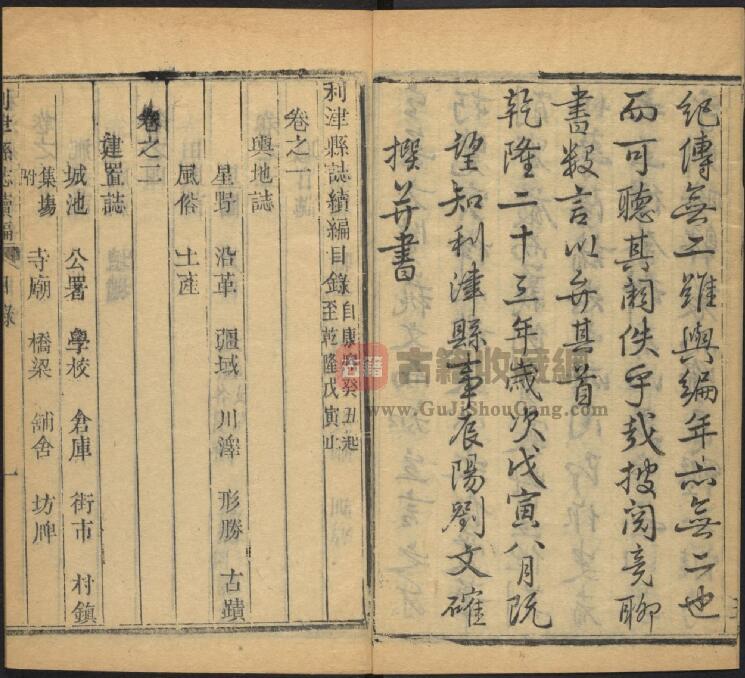 紀傳無二雖與編年亦無二也
而可聽其闕佚乎哉披閱竟聊
書數言以弁其首
乾隆二十三年歲次戊寅八月既
望知利津縣事辰陽劉文確
撰并書
利津縣誌續編目錄 自康熙癸丑起至乾隆戊寅止
卷之一
輿地誌
星野 沿革 疆域 川澤 形勝 古蹟
風俗 土產
卷之二
建置誌
城池 公署 學校 倉庫 街市 村鎮
集場 附 寺廟 橋梁 舖舍 坊牌
利津縣志續編 目錄 一
古籍 古籍收藏網
www.GuJiShouCang.com